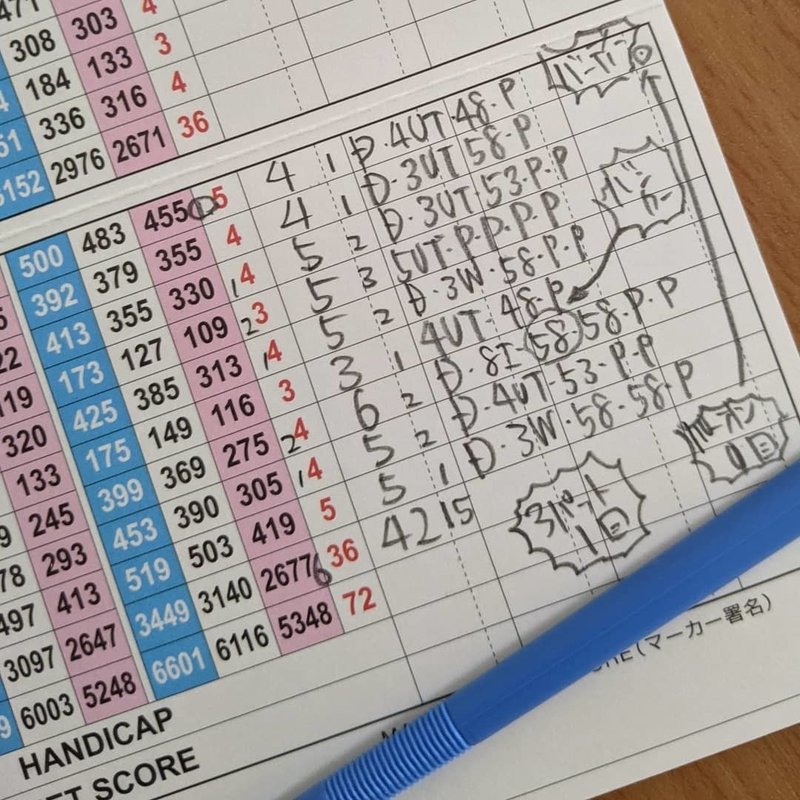 471 4
308 303 3
184 133 4
336 316 36
2976 2671
500 483 455 0 5 4 1 D・4UT・48・P バーディー 0
392 379 355 4 4 1 D・3UT・58・P
413 355 330 1 4 5 2 D・3UT・53・P・P
173 127 109 2 3 5 3 5UT・P・P・P・P
320 425 385 313 1 4 5 2 D・3W・58・P・P
133 175 149 116 3 3 1 4UT・48・P
245 399 369 275 2 4 6 2 D・8I・58・58・P・P バンカー
293 453 390 305 1 4 5 2 D・4UT・53・P・P
413 519 503 419 5 5 1 D・3W・58・58・P
3097 2647 3449 3140 2677 6 36 42 15
6003 5248 6601 6116 5348 72
3パット
1回
パーオン
0回
HANDICAP
(マーカー署名)
ET SCORE